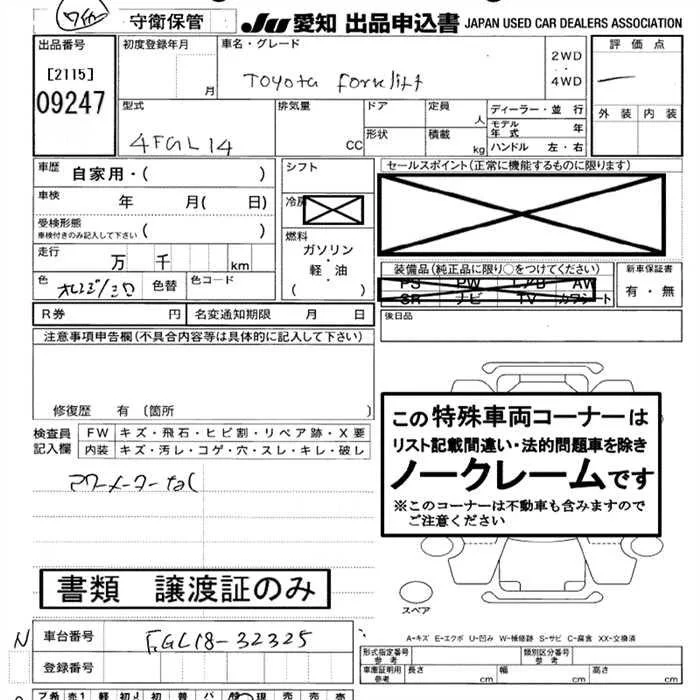 守衛保管 JU 愛知 出品申込書 JAPAN USED CAR DEALERS ASSOCIATION
出品番号 初度登録年月 車名・グレード 評価点
[2115] 月 Toyota Forklift 2WD
・
・
4WD
09247
型式 排気量 ドア 定員 ディーラー・並行 外装 内装
4FGL14 CC 形状 人 モデル年式 年
積載 kg ハンドル 左・右
車歴 自家用・( ) シフト セールスポイント(正常に機能するものに限ります)
車検 年 月( 日) 冷房
受検形態
車検付きのみ記入して下さい ( ) 燃料
ガソリン
・
軽・油
( )
走行 万 千 km 装備品(純正品に限り○をつけてください) 新車保証書
色 オレンジ/クロ 色替 色コード PS PW エアB AW 有・無
SR ナビ TV カワシート
R券 円 名変通知期限 月 日 後日品
注意事項申告欄(不具合内容等は具体的に記入して下さい)
修復歴 有 〔箇所 〕
検査員
記入欄
FW キズ・飛石・ヒビ割・リペア跡・X要
内装 キズ・汚レ・コゲ・穴・スレ・キレ・破レ
この特殊車両コーナーは
リスト記載間違い・法的問題車を除き
ノークレームです
※このコーナーは不動車も含みますので
ご注意ください
書類 譲渡証のみ
スペア
A-キズ E-エクボ U-凹み W-補修跡 S-サビ C-腐食 XX-交換済
N 車台番号 FGL18-32325
登録番号
形式指定番号
参考
類別区分番号
参考
車庫証明用
参考
長さ cm 幅 cm 高さ cm